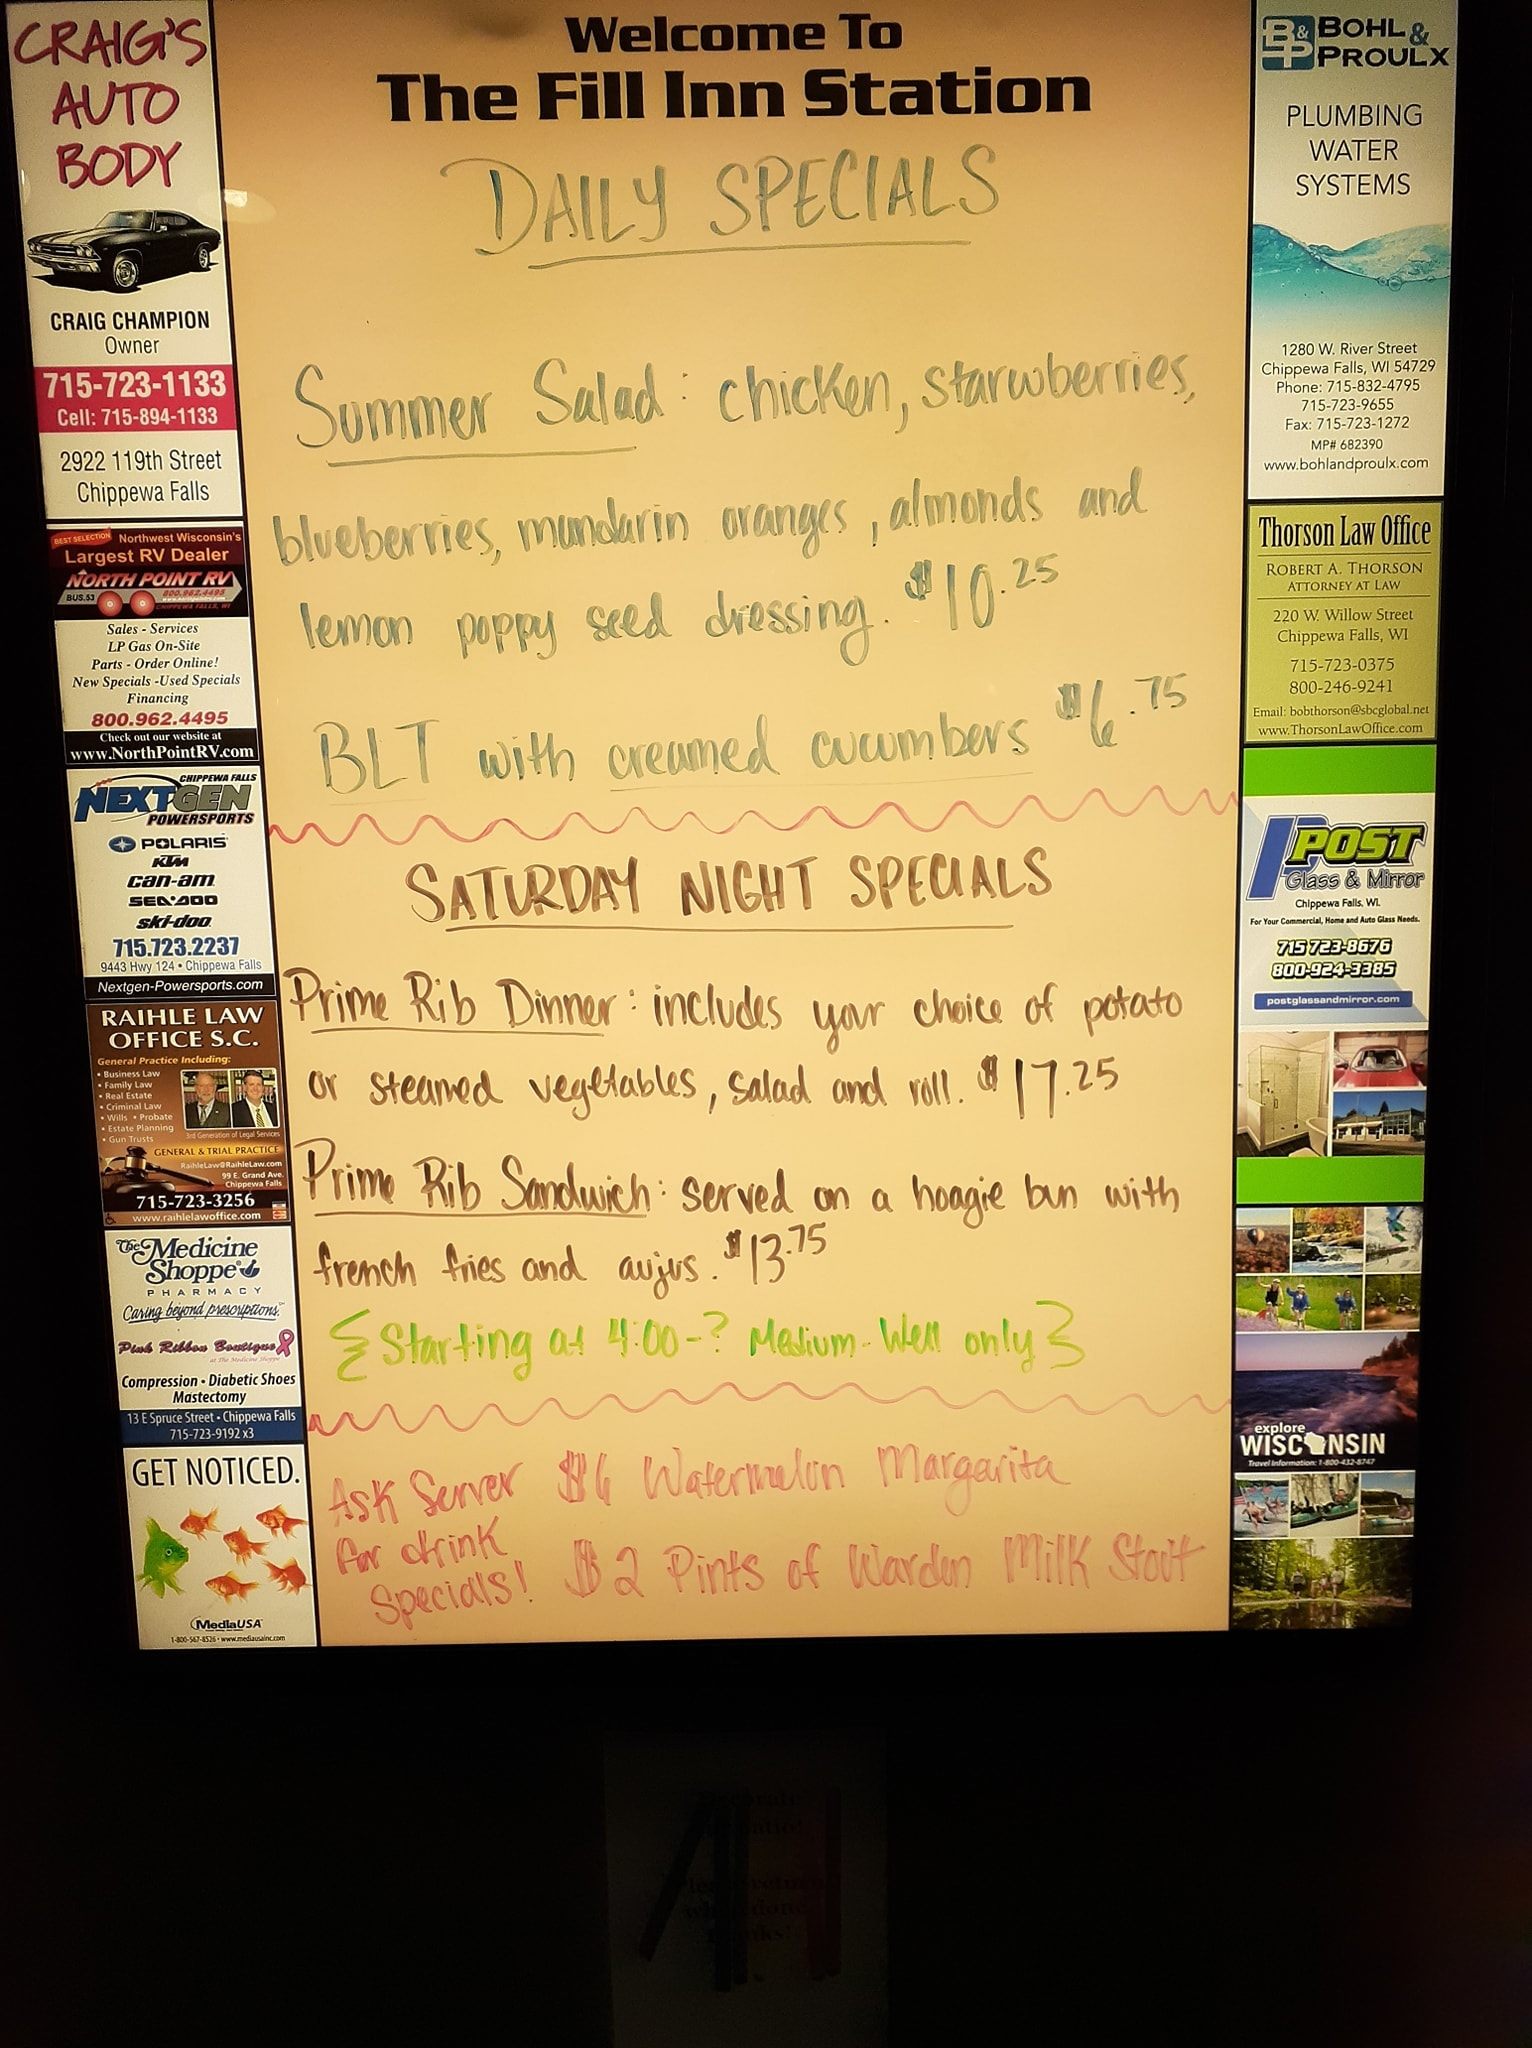 Welcome To
The Fill Inn Station
DAILY SPECIALS
Summer Salad: chicken, starwberries,
blueberries, mandarin oranges, almonds and
lemon poppy seed dressing. $10.25
BLT with creamed cucumbers $6.75
SATURDAY NIGHT SPECIALS
Prime Rib Dinner: includes your choice of potato
or steamed vegetables, salad and roll. $17.25
Prime Rib Sandwich: served on a hoagie bun with
french fries and aujus. $13.75
{Starting at 4:00-? Medium-Well only}
Ask Server
for drink
Specials!
$6 Watermelon Margarita
$2 Pints of Warden Milk Stout
CRAIG'S
AUTO
BODY
CRAIG CHAMPION
Owner
715-723-1133
Cell: 715-894-1133
2922 119th Street
Chippewa Falls
BEST SELECTION
Northwest Wisconsin's
Largest RV Dealer
NORTH POINT RV
BUS.53
800.962.4495
CHIPPEWA FALLS, WI
Sales - Services
LP Gas On-Site
Parts - Order Online!
New Specials -Used Specials
Financing
800.962.4495
Check out our website at
www.NorthPointRV.com
CHIPPEWA FALLS
NEXTGEN
POWERSPORTS
POLARIS
KTM
can-am
SEA-DOO
ski-doo
715.723.2237
9443 Hwy 124 • Chippewa Falls
Nextgen-Powersports.com
RAIHLE LAW
OFFICE S.C.
General Practice Including:
• Business Law
• Family Law
• Real Estate
• Criminal Law
• Wills • Probate
• Estate Planning
• Gun Trusts
3rd Generation of Legal Services
GENERAL & TRIAL PRACTICE
RaihleLaw@RaihleLaw.com
99 E. Grand Ave.
Chippewa Falls
715-723-3256
www.raihlelawoffice.com
The Medicine
Shoppe
PHARMACY
Caring beyond prescriptions.
Pink Ribbon Boutique
at The Medicine Shoppe
Compression • Diabetic Shoes
Mastectomy
13 E Spruce Street • Chippewa Falls
715-723-9192 x3
GET NOTICED.
MediaUSA
1-800-567-8526 • www.mediausainc.com
B&P
BOHL &
PROULX
PLUMBING
WATER
SYSTEMS
1280 W. River Street
Chippewa Falls, WI 54729
Phone: 715-832-4795
715-723-9655
Fax: 715-723-1272
MP# 682390
www.bohlandproulx.com
Thorson Law Office
ROBERT A. THORSON
ATTORNEY AT LAW
220 W. Willow Street
Chippewa Falls, WI
715-723-0375
800-246-9241
Email: bobthorson@sbcglobal.net
www.ThorsonLawOffice.com
POST
Glass & Mirror
Chippewa Falls, WI.
For Your Commercial, Home and Auto Glass Needs.
715 723-8676
800-924-3385
postglassandmirror.com
explore
WISCONSIN
Travel Information: 1-800-432-8747